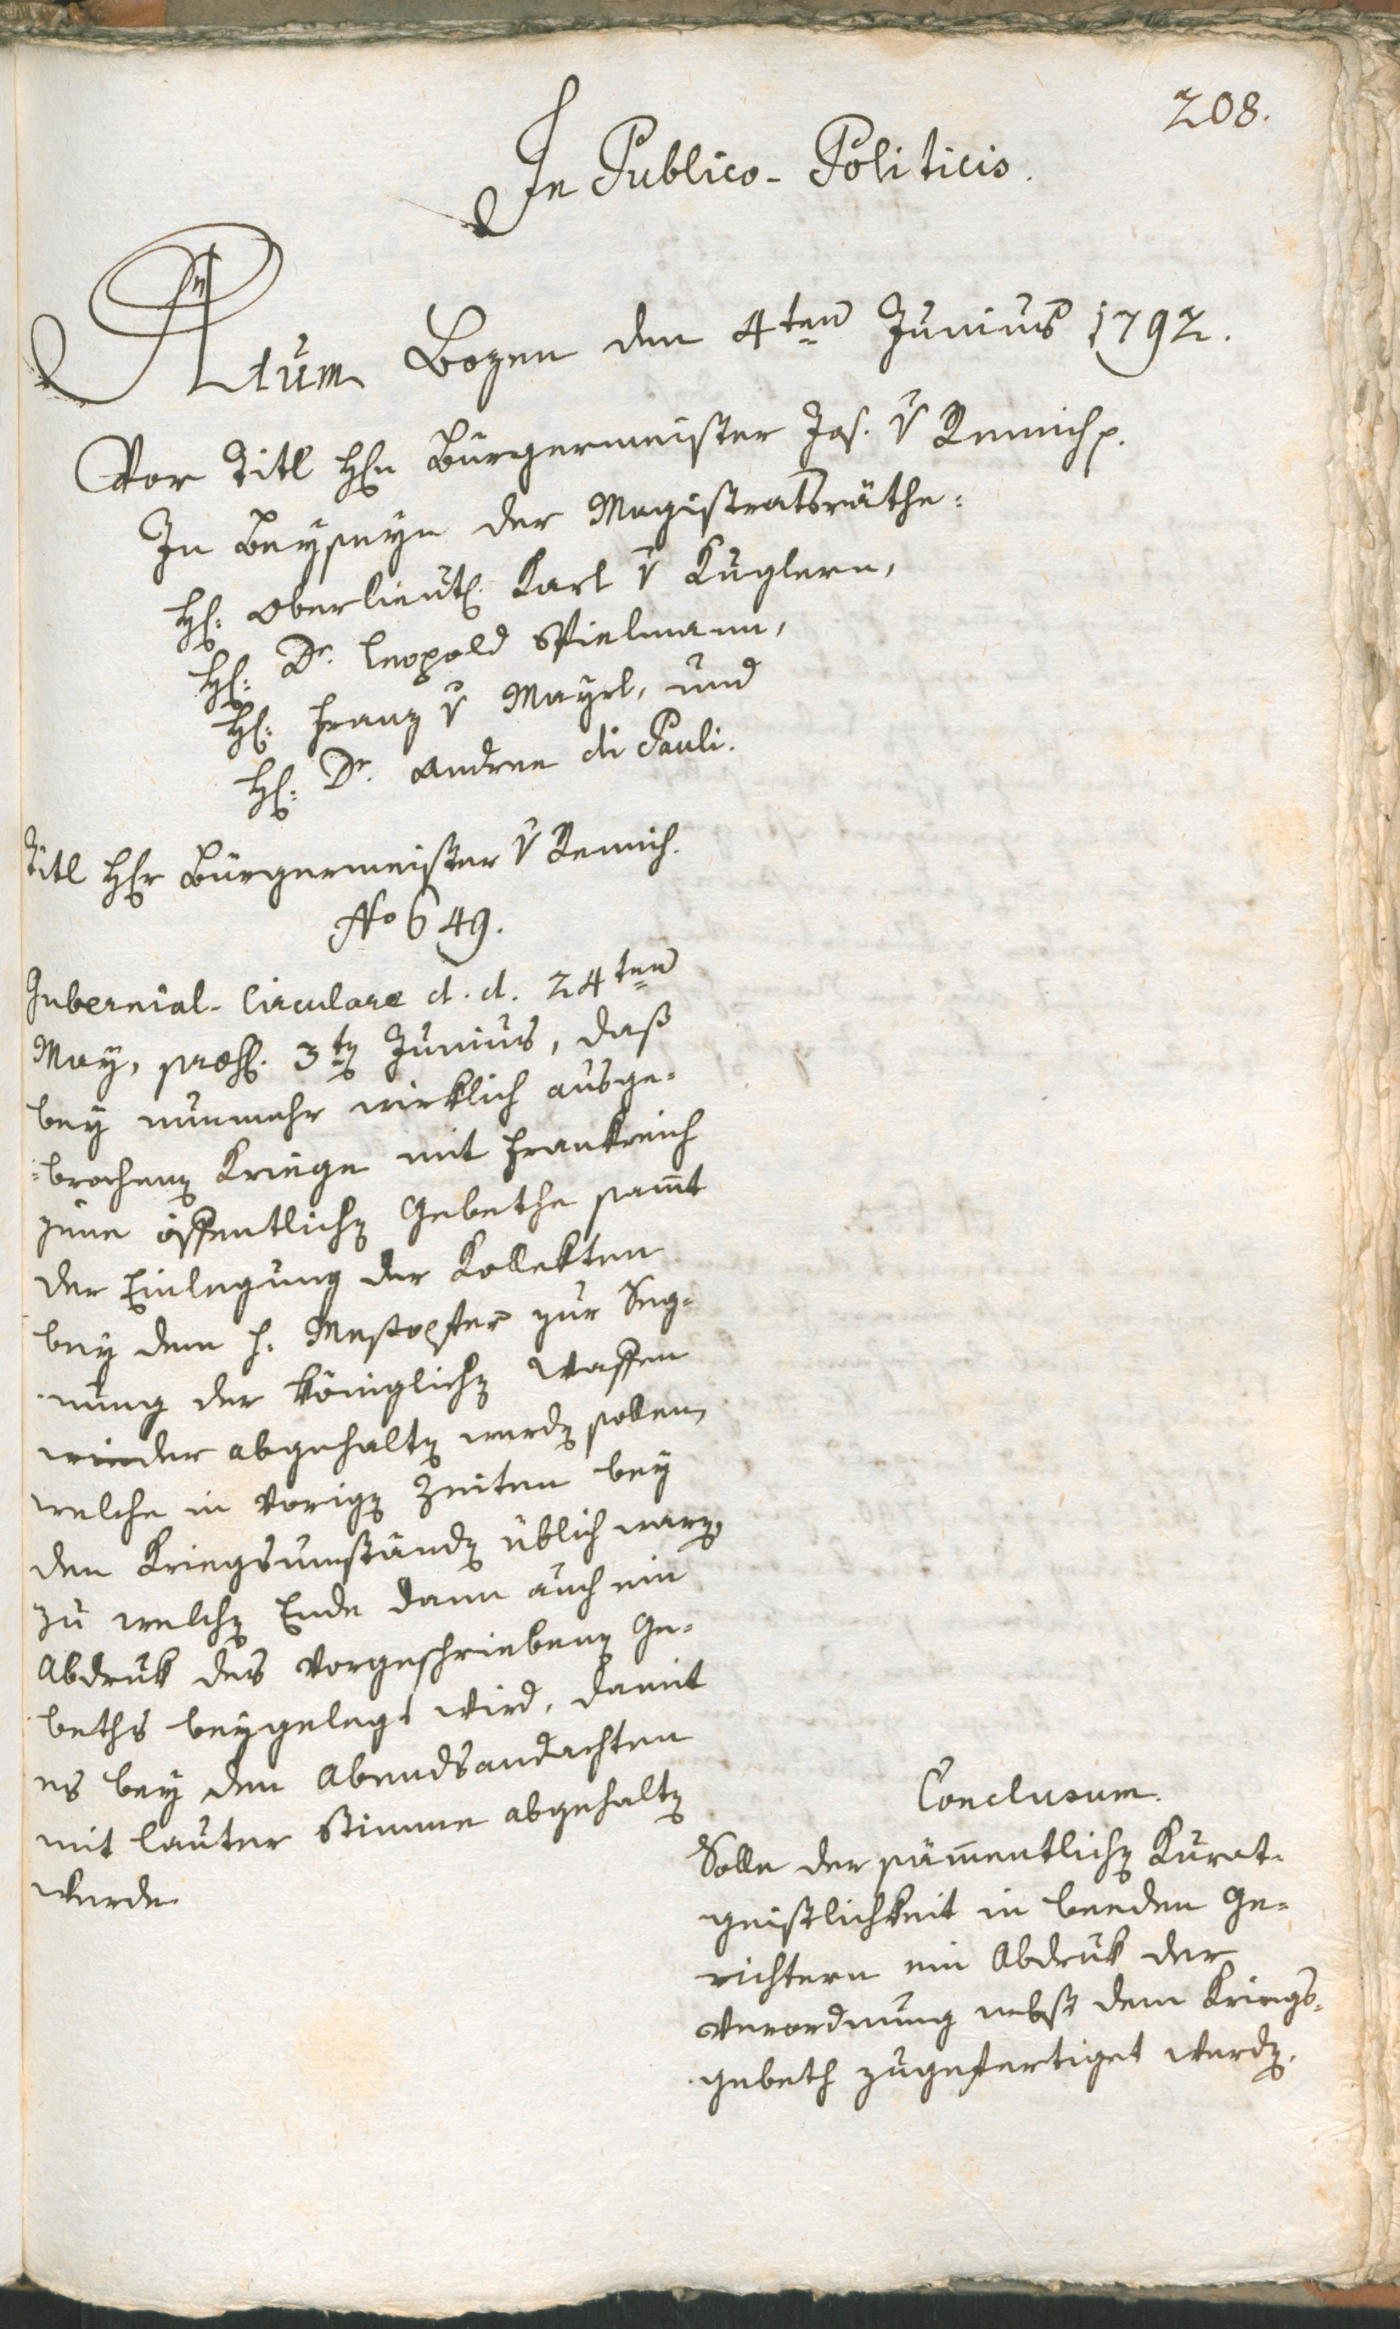 208.
In Publico-Politicis.
Actum Bozen den 4ten Junius 1792.
Vor Titl Hℓn Bürgermeister Jos. v Remich p.
In Beyseyn der Magistratsräthe:
Hℓ: Oberlieutℓ. Karl v Kuglern,
Hℓ: Dr. Leopold Spielmann,
Hℓ: Franz v Mayrl, und
Hℓ: Dr. Andree di Pauli.
Titl Hℓr Bürgermeister v Remich.
No 649.
Gubernial-Circulare d. d. 24ten
May, præsℓ. 3ten Junius, daß
bey nunmehr wirklich ausge-
-brochenen Kriege mit Frankreich
jene öffentlichen Gebethe sam̅t
der Einlegung der Kollekten
bey dem h. Meßopfer zur Seg-
nung der königlichen Waffen
wieder abgehalten werden sollen,
welche in vorigen Zeiten bey
den Kriegsumständen üblich waren,
zu welchen Ende dann auch ein
Abdruk des vorgeschriebenen Ge-
beths beygelegt wird, damit
es bey den Abendsandachten
mit lauter Stimme abgehalten
werde.
Conclusum.
Solle der säm̅entlichen Kurat-
geistlichkeit in beeden Ge-
richtern ein Abdruk der
Verordnung nebst dem Kriegs-
gebeth zugefertiget werden.